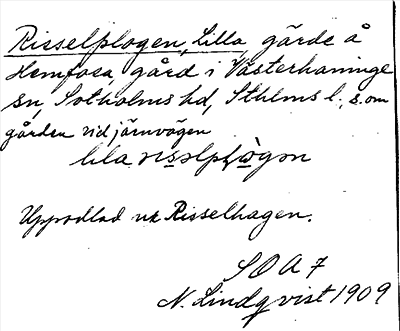 Risselplogen, Lilla, gärde å
Hemfosa gård i Västerhaninge
sn, Sotholms hd, Sthlms l., s. om
gården vid järnvägen
lila risslplògon
Uppodlad ur Risselhagen.
SOA 7
N. Lindqvist 1909